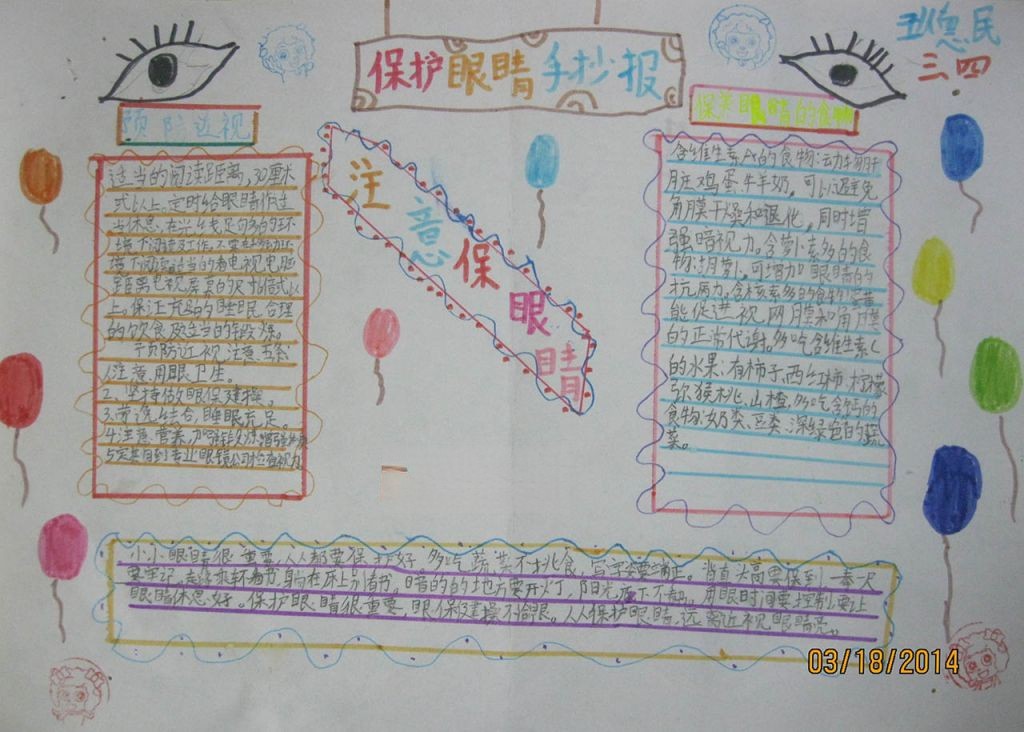 保护眼睛手抄报
三四
预防近视
保养眼睛的食物
注意保眼睛
适当的阅读距离,30厘米
或以上。定时给眼睛作适
当休息。在光线足够的环
境下阅读及工作,不要在
境下阅读适当的看电视电脑
距离电视屏幕的
上。保证充足的睡眠合理
的饮食及适当的锻炼。
预防近视注意
注意用眼卫生。
2、坚持做眼保健操。
3.劳逸结合,睡眠充足。
4.注意营养,加强锻炼,增强体质
5定期到专业眼镜公司检查视力
含维生素A的食物:动物肝
脏鸡蛋牛羊奶,可以避免
角膜干燥和退化,同时增
强暗视力,含萝卜素多的食
物:胡萝卜,可增加眼睛的
抗病力,含核素多的食物
能促进视网膜和角膜
的正常代谢。多吃含维生素C
的水果:有柿子、西红柿、柠檬
猕猴桃、山楂,多吃含钙的
食物:奶类、豆类、深绿色的蔬
菜。
小小眼睛很重要,人人都要保护好。多吃蔬菜不挑食,写字姿势要端正。
要牢记,走路乘车不看书,躺在床上别看书。暗的的地方要开灯,阳光底下不
眼睛休息好。保护眼睛很重要,眼保健操不偷眼。人人保护眼睛,远离近视眼睛亮。
03/18/2014